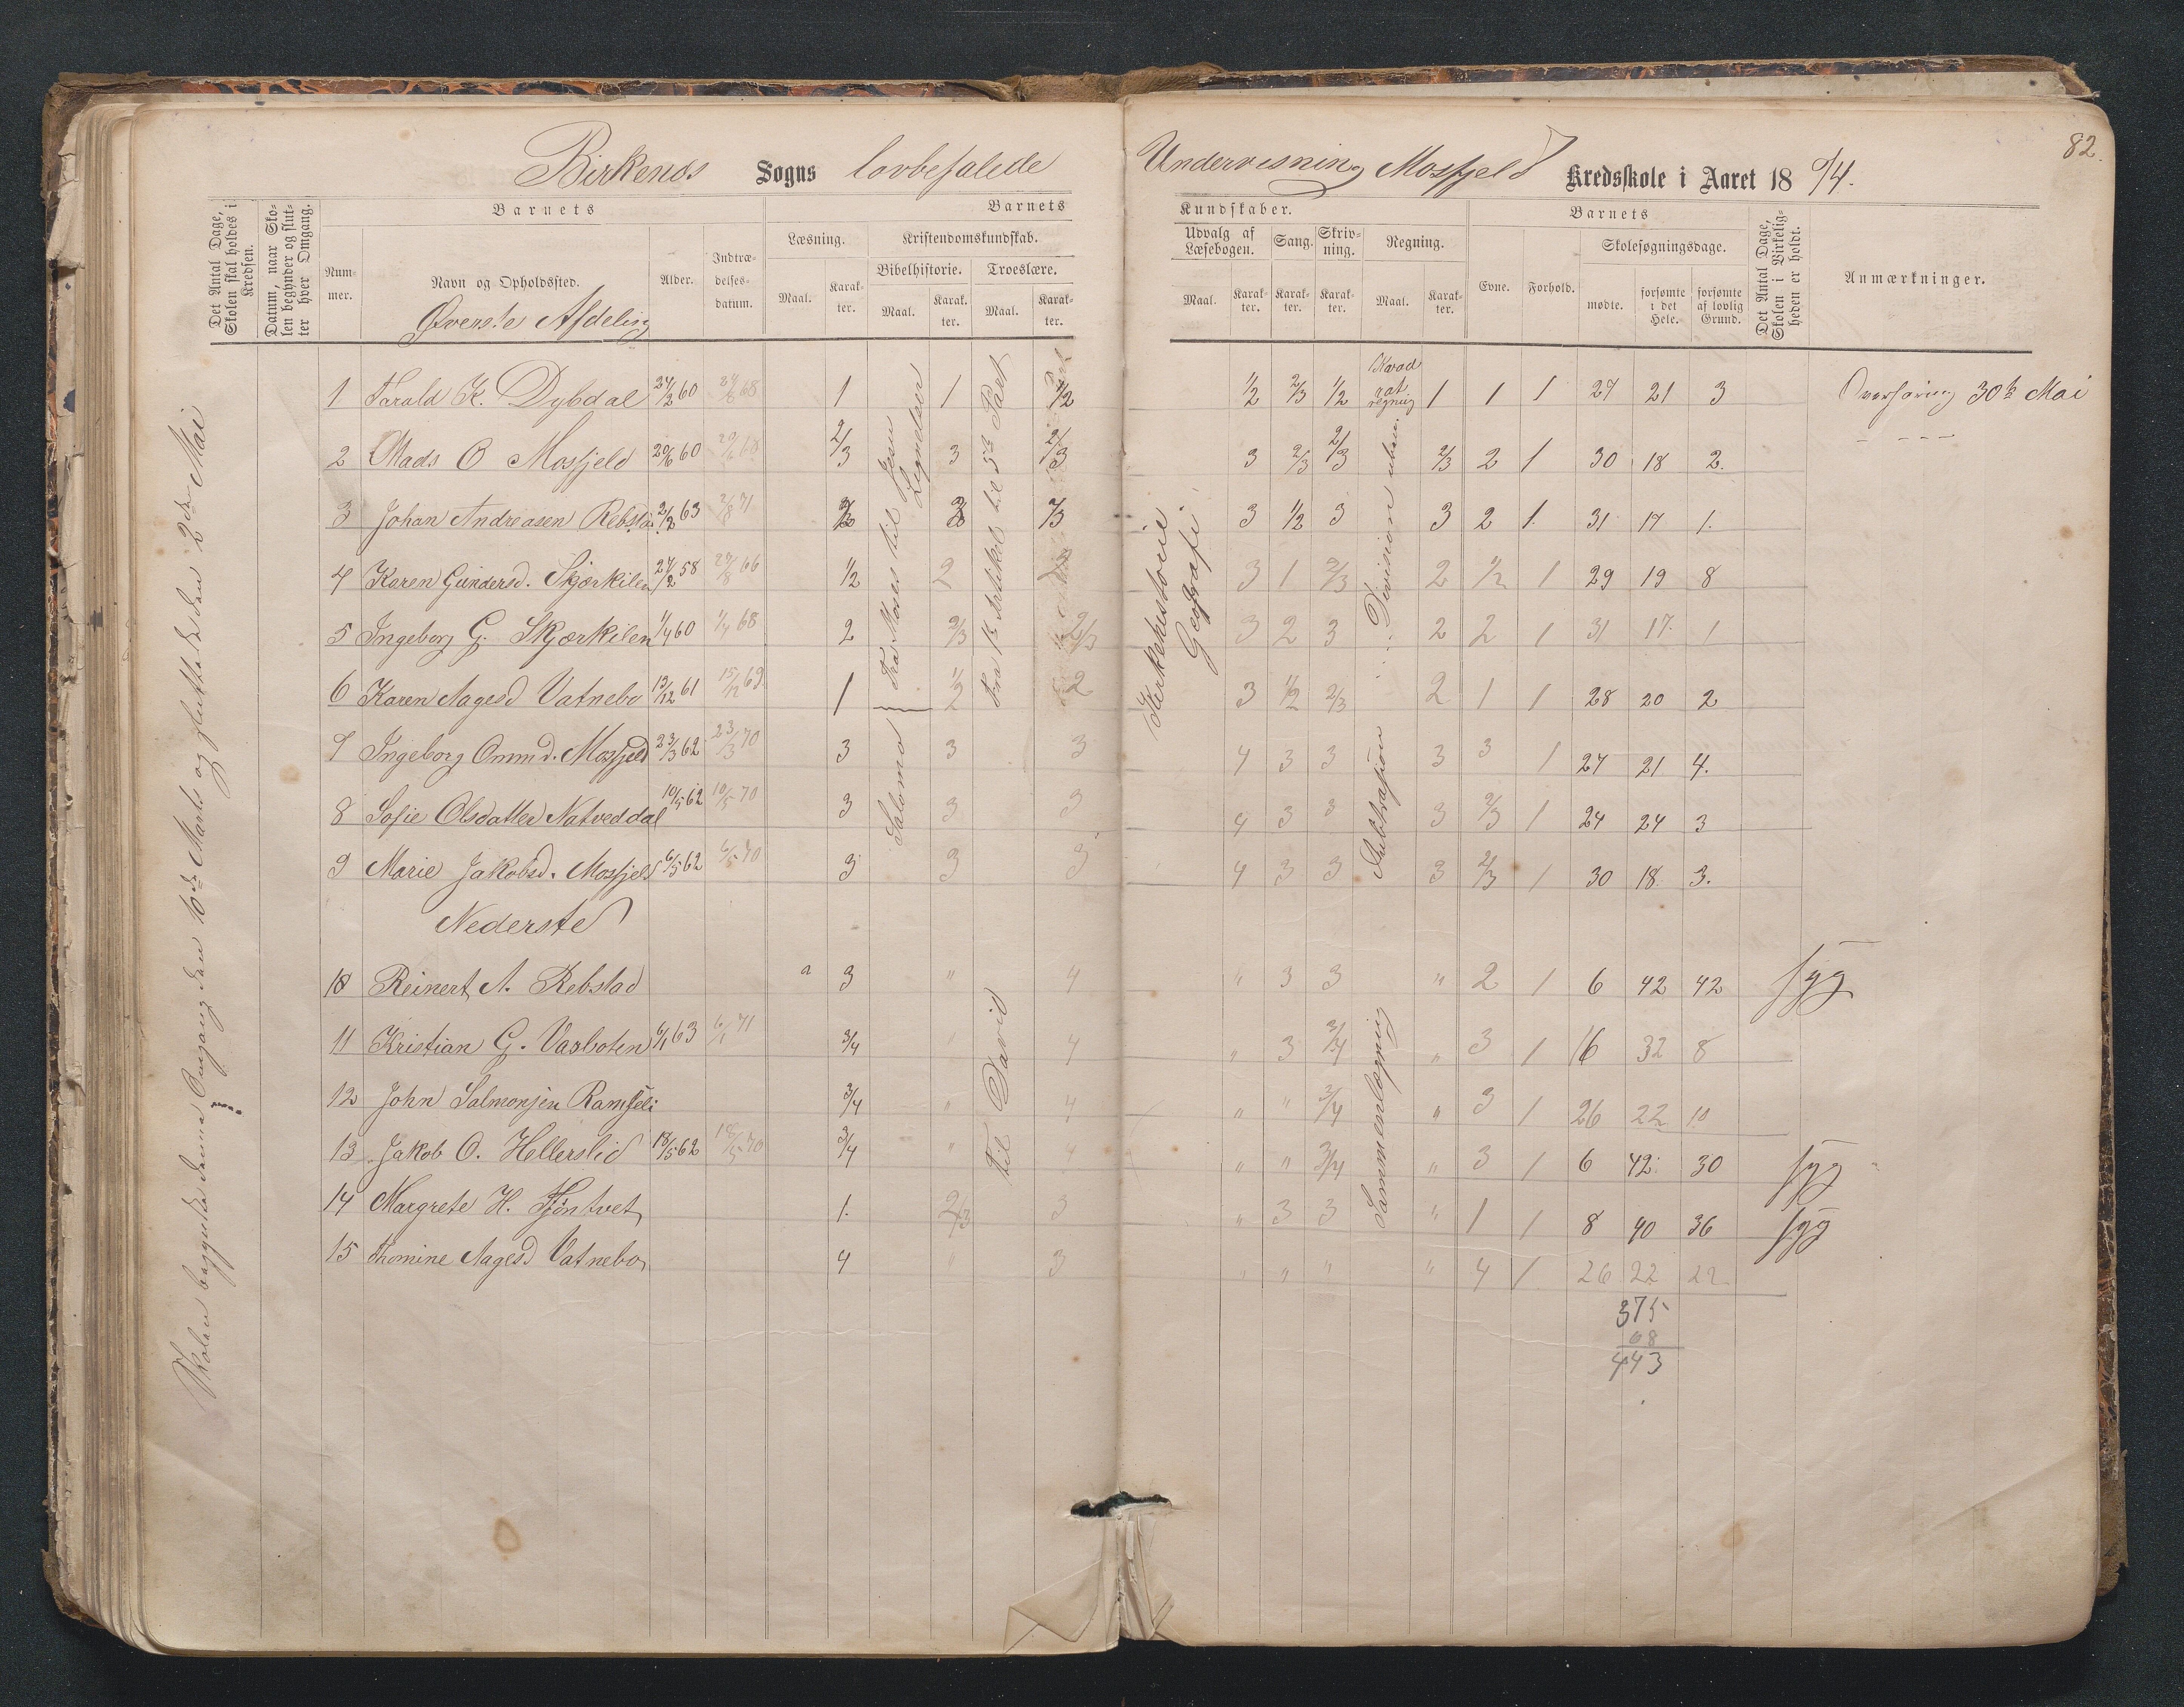 82.
Birkenæs Sogns lovbefalede Undervisning Mosfjeld Kredsskole i Aaret 1874.
Det Antal Dage, Skolen skal holdes i Kredsen.
Datum, naar Skolen begynder og slutter hver Omgang.
Barnets
Nummer.
Navn og Opholdssted.
Alder.
Indtrædelsesdatum.
Barnets Kundskaber.
Læsning.
Maal.
Karakter.
Kristendomskundskab.
Bibelhistorie.
Maal.
Karakter.
Troeslære.
Maal.
Karakter.
Udvalg af Læsebogen.
Maal.
Karakter.
Sang.
Karakter.
Skrivning.
Karakter.
Regning.
Maal.
Karakter.
Barnets
Evne.
Forhold.
Skolesøgningsdage.
mødte.
forsømte i det Hele.
forsømte af lovlig Grund.
Det Antal Dage, Skolen i Virkeligheden er holdt.
Anmærkninger.
Skolen begyndte denne Omgang den 16de Marts og sluttede den 2den Mai
Øverste Afdeling
1 Tarald K. Dybdal 24/2 60 24/6 68 1 1 1/2 1/2 2/3 1/2 1 1 1 27 21 3 Overhøring 30te Mai
2 Mads O Mosfjeld 20/6 60 20/6 68 2/3 3 2/3 3 2/3 2/3 2/3 2 1 30 18 2. - - - -
3 Johan Andreasen Rebstad 2/2 63 2/8 71 3 1/2 3 3 2 1. 31 17 1.
4 Karen Gundersd. Skjærkilen 24/2 58 24/8 66 1/2 2 3 1 2/3 2 1/2 1 29 19 8
5 Ingeborg G. Skjærkilen 1/4 60 1/4 68 2 2/3 2/3 3 2 3 2 2 1 31 17. 1
6 Karen Aagesd Vatnebo 13/12 61 15/12 69 1 1/2 2 3 1/2 2/3 2 1 1 28 20 2
7 Ingeborg Ommd. Mosfjeld 23/3 62 23/3 70 3 3 3 4 3 3 3 3 1 27 21 4.
8 Sofie Olsdatter Natveddal 10/5 62 10/5 70 3 3 3 4 3 3 3 2/3 1 24 24 3
9 Marie Jakobsd. Mosfjeld 6/5 62 6/5 70 3 3 3 4 3 3 3 2/3 1 30 18 3.
Fra Moses til Jesu
Salomo
Fra 1te Artikel til 5te Part
Kirkehistorie.
Geografi.
Kvadratregning
Division
Subtraksion
Nederste
10 Reinert A. Rebstad a 3 " 4 " 3 3 " 2 1 6 42 42 syg
11 Kristian G. Vasboten 6/1 63 6/1 71 3/4 " 4 " 3 3/4 " 3 1 16 32 8
12 John Salmonsen 3/4 " 4 " " 3/4 " 3 1 26 22 10
13 Jakob O. Hellerslid 18/5 62 18/5 70 3/4 " 4 " " 3/4 " 3 1 6 42 30 syg
14 Margrete H. Tjöntvet 1. 2/3 3 " 3 3 " 1 1 8 40 36 syg
15 Thomine Aagesd Vatnebo 4 " 3 " " " " 4 1 26 22 22
til David
Sammenlægning
375
68
443